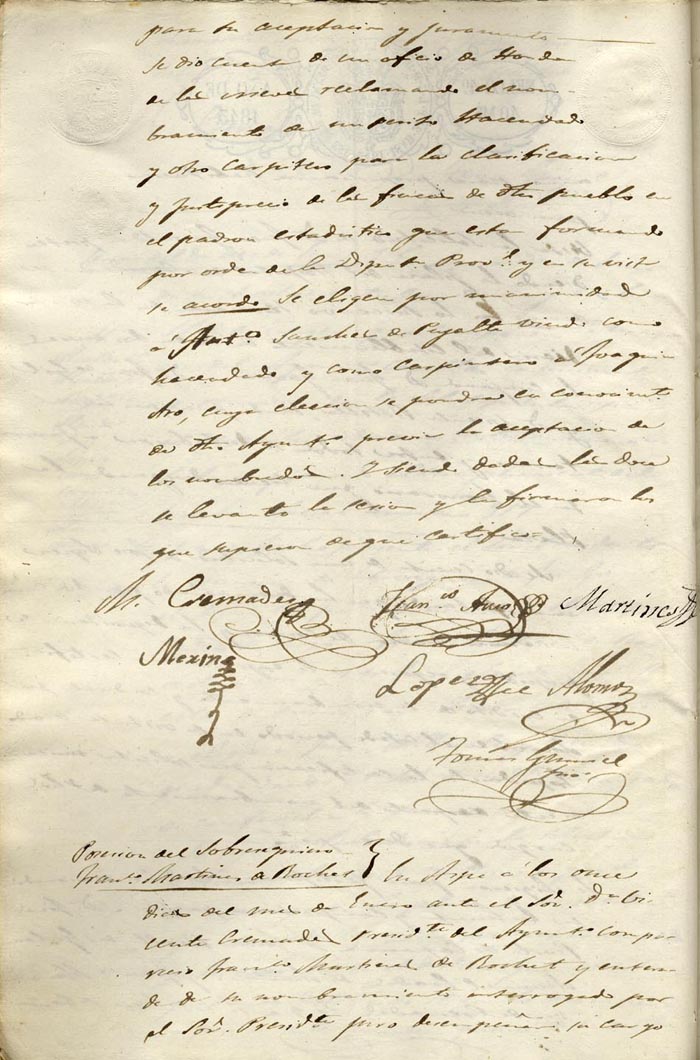 para su aceptacion y juramento
se dio cuenta de un oficio de Hondon
de las nieves reclamando el nom-
bramiento de un perito Hacendado
y otro Carpintero para la clasificacion
y justiprecio de las fincas de dho pueblo en
el padron estadistico que estan formando
por orden de la Diput.n Prov.l y en su vista
se acordo Se eligen por unanimidad
a Ant.o Sanchez de Pujalte viudo como
hacendado y como Carpintero a Joaquin
Aro, cuya eleccion se pondra en conocimt.o
de dho Ayunt.o previa la aceptacion de
los nombrados. Y siendo dadas las doce
se levanto la sesion y la firmaron los
que supieron de que certifico.
M. Cremades Fran.co Martinez
Merino
Lopez Alonso
Tomás
Posesion del Sobresequiero
Fran.co Martinez de Bochet } En Aspe a los once
dias del mes de Enero ante el Sor. Dn Vi-
cente Cremades Presid.te del Ayunt.o compa-
recio Fran.co Martinez de Bochet y entera-
do de su nombramiento interrogado por
el Sor. Presid.te juro desempeñar su cargo